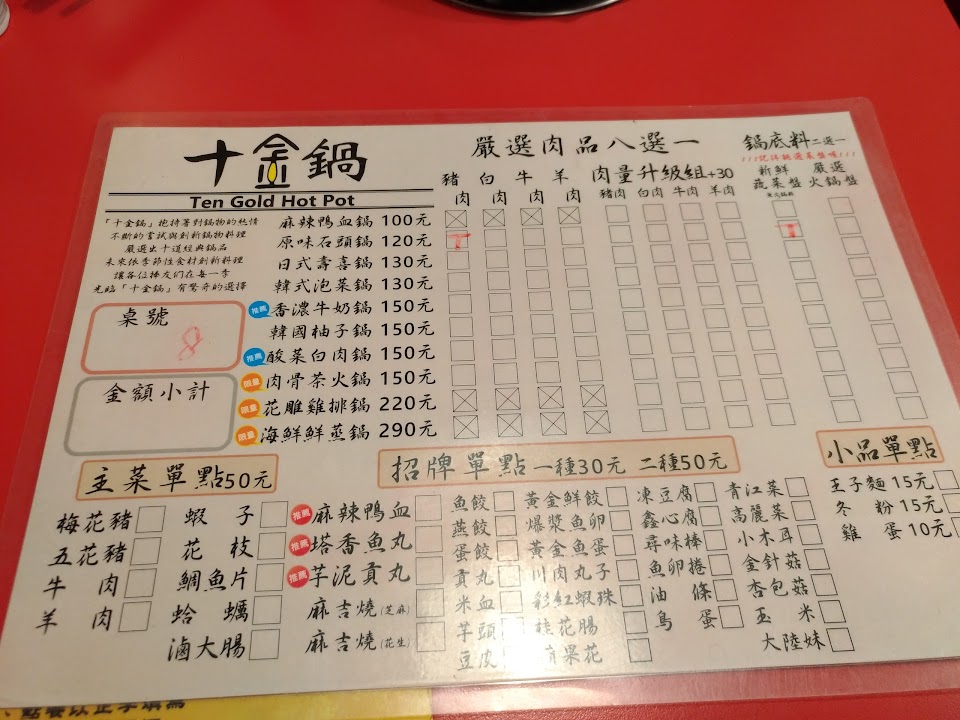 十金鍋
Ten Gold Hot Pot
「十金鍋」抱持著對鍋物的熱情
不斷的嘗試與創新鍋物料理
嚴選出十道經典鍋品
未來依季節性食材創新料理
讓各位捧友們在每一季
光臨「十金鍋」有驚奇的選擇
桌號
8
金額小計
嚴選肉品八選一
豬肉 白肉 牛肉 羊肉
肉量升級組+30
豬肉 白肉 牛肉 羊肉
鍋底料二選一
新鮮蔬菜盤 嚴選火鍋盤
麻辣鴨血鍋 100元
原味石頭鍋 120元
日式壽喜鍋 130元
韓式泡菜鍋 130元
推薦 香濃牛奶鍋 150元
韓國柚子鍋 150元
推薦 酸菜白肉鍋 150元
限量 肉骨茶火鍋 150元
限量 花雕雞排鍋 220元
限量 海鮮鮮蒸鍋 290元
主菜單點50元
梅花豬 蝦子
五花豬 花枝
牛肉 鯛魚片
羊肉 蛤蠣
滷大腸
招牌單點 一種30元 二種50元
推薦 麻辣鴨血 魚餃 黃金鮮餃 凍豆腐 青江菜
推薦 塔香魚丸 燕餃 爆漿魚卵 鑫心腐 高麗菜
推薦 芋泥貢丸 蛋餃 黃金魚蛋 尋味棒 小木耳
貢丸 川肉丸子 魚卵捲 金針菇
麻吉燒(芝麻) 米血 彩虹蝦珠 油條 杏包菇
麻吉燒(花生) 芋頭 桂花腸 鳥蛋 玉米
豆皮 大陸妹
小品單點
王子麵 15元
冬粉 15元
雞蛋 10元